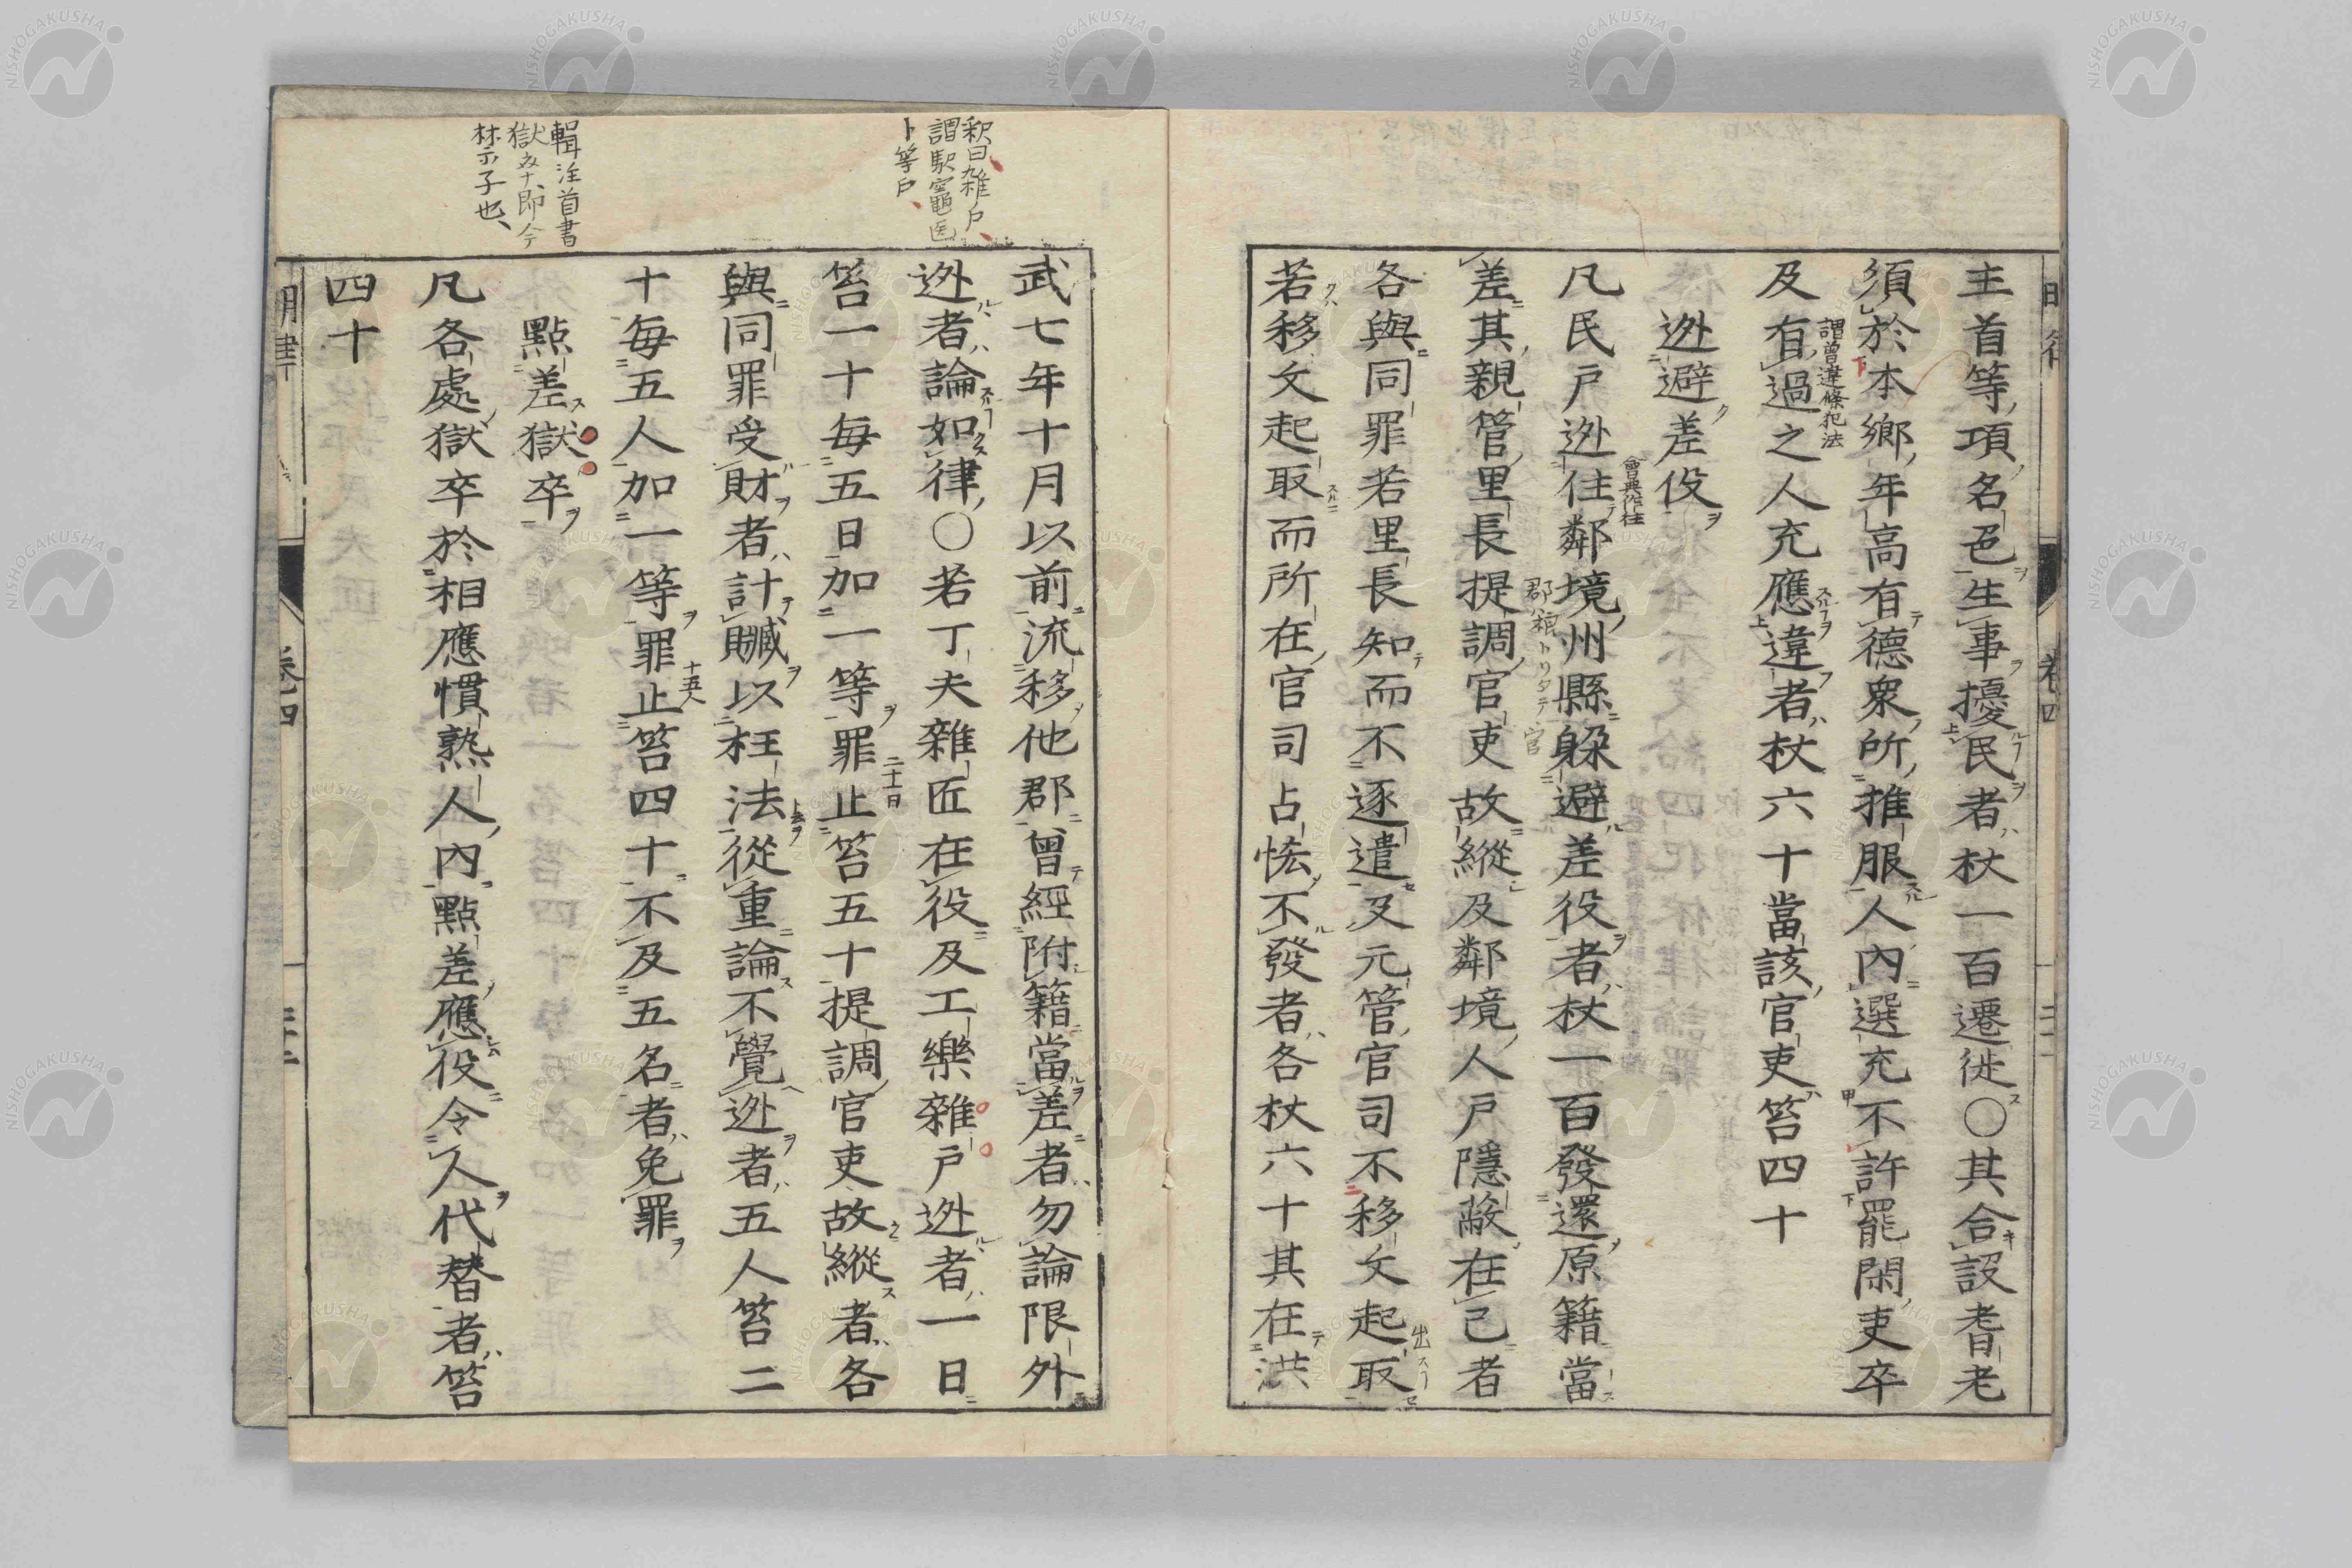 主首等項名色生事擾民者杖一百遷徙〇其合設耆老
須於本鄉年高有德衆所推服人內選充不許罷閑吏卒
及有過之人充應違者杖六十當該官吏笞四十
謂曾違條犯法
迯避差役
凡民戶迯住鄰境州縣躲避差役者杖一百發還原籍當
會典作往
差其親管里長提調官吏故縱及鄰境人戶隱蔽在己者
各與同罪若里長知而不逐遣及元管官司不移文起取
若移文起取而所在官司占恡不發者各杖六十其在洪
釈曰雑戶、
謂駅竈醫
卜等戶、
輯注首書
獄卒即今
禁子也、
武七年十月以前流移他郡曾經附籍當差者勿論限外
迯者論如律〇若丁夫雜匠在役及工樂雜戶迯者一日
笞一十每五日加一等罪止笞五十提調官吏故縱者各
二十一日
與同罪受財者計贓以枉法從重論不覺迯者五人笞二
十每五人加一等罪止笞四十不及五名者免罪
十五人
點差獄卒
凡各處獄卒於相應慣熟人內點差應役令人代替者笞
四十
明律
卷四
NISHOGAKUSHA